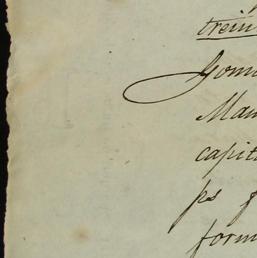 trein
Gom
Man
capit
ps f
form